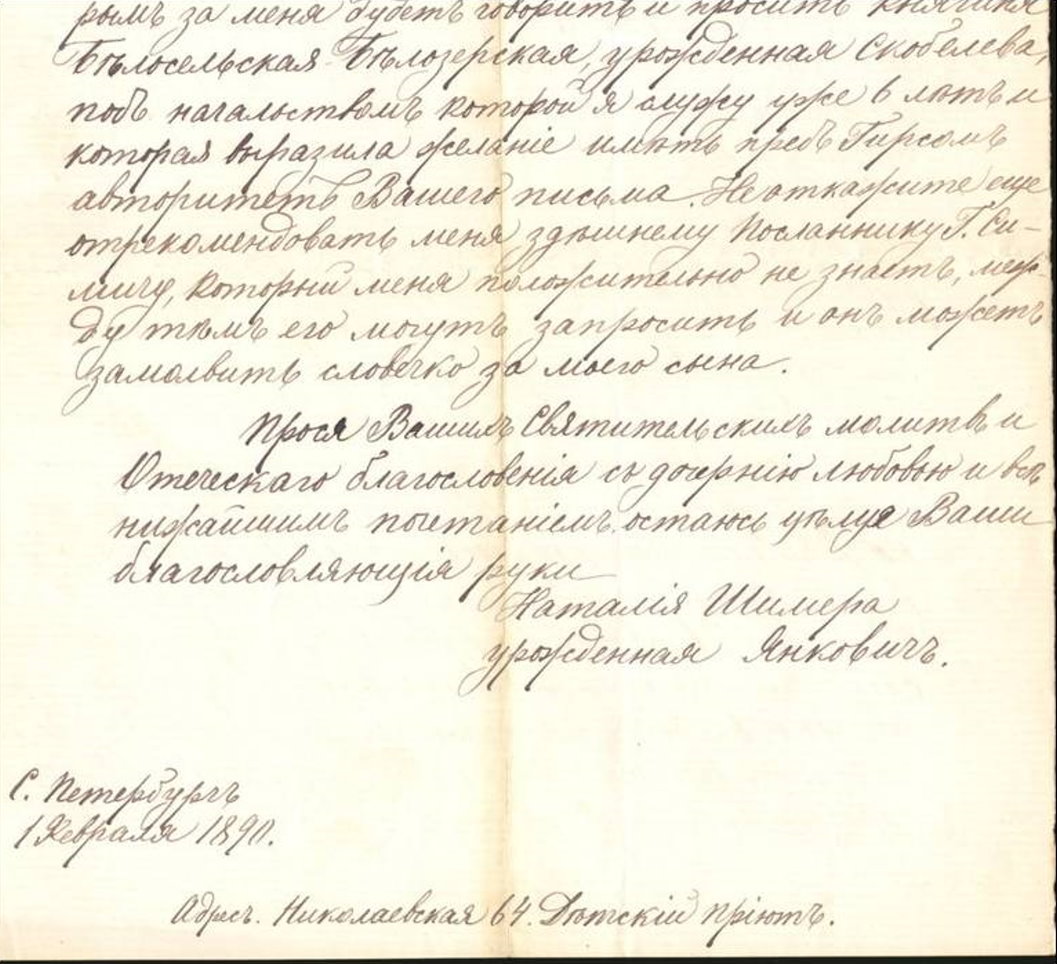 рымъ за меня будетъ говорить и просить княгиня
Бѣлосельская-Бѣлозерская, урожденная Скобелева,
подъ начальствомъ которой я служу уже 6 лѣтъ и
которая выразила желаніе имѣть предъ Гирсомъ
авторитетъ Вашего письма. Не откажите еще
отрекомендовать меня здѣшнему Посланнику Г. Си-
мичу, который меня положительно не знаетъ, меж-
ду тѣмъ его могутъ запросить и онъ можетъ
замолвить словечко за моего сына.
Прося Вашихъ Святительскихъ молитвъ и
Отеческаго благословенія съ дочернію любовью и все
нижайшимъ почтаніемъ остаюсь цѣлуя Ваши
благословляющія руки
Наталія Шимера
урожденная Янковичъ.
С. Петербургъ
1 Февраля 1890.
Адресъ. Николаевская 64. Дѣтскій пріютъ.